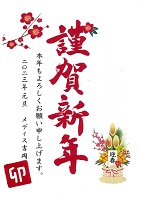 謹賀新年
本年もよろしくお願い申し上げます。
二〇二三年 元旦
メディス吉岡
卯
迎春